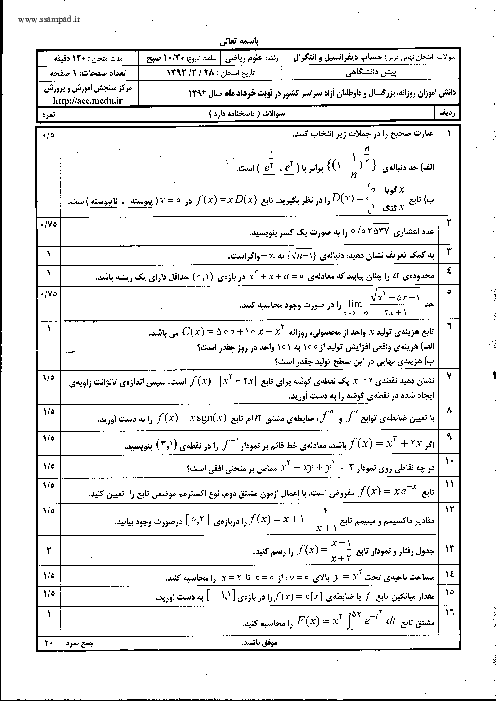 www.sampad.ir
باسمه تعالی
سوالات امتحان نهایی درس: حساب دیفرانسیل و انتگرال رشته: علوم ریاضی ساعت شروع: ۱۰/۳۰ صبح مدت امتحان: ۱۲۰ دقیقه
پیش دانشگاهی تاریخ امتحان: ۱۳۹۳/۳/۲۸ تعداد صفحات: ۱ صفحه
دانش آموزان روزانه، بزرگسال و داوطلبان آزاد سراسر کشور در نوبت خرداد ماه سال ۱۳۹۳ مرکز سنجش آموزش و پرورش
http://aee.medu.ir
ردیف سوالات (پاسخنامه دارد) نمره
۱ عبارت صحیح را در جملات زیر انتخاب کنید. ۰/۵
الف) حد دنباله‌ی برابر با است.
ب) تابع را در نظر بگیرید. تابع f(x) = xD(x) در x = ۰ (پیوسته ، ناپیوسته) است.
x گویا
x گنگ
۲ عدد اعشاری را به صورت یک کسر بنویسید. ۰/۷۵
۳ به کمک تعریف نشان دهید: دنباله‌ی واگراست. ۱
۴ محدوده‌ی a را چنان بیابید که معادله‌ی در بازه‌ی (۰,۱) حداقل دارای یک ریشه باشد. ۱
۵ حد را در صورت وجود محاسبه کنید. ۰/۷۵
۶ تابع هزینه‌ی تولید x واحد از محصولی، روزانه C(x) = ۵۰۰ + ۱۰x − x² می باشد. ۱
الف) هزینه‌ی واقعی افزایش تولید از ۱۰۰ به ۱۰۱ واحد در روز چقدر است؟
ب) هزینه‌ی نهایی در این سطح تولید چقدر است؟
۷ نشان دهید نقطه‌ی x = ۲ یک نقطه‌ی گوشه برای تابع f(x) = |x² − ۲x| است. سپس اندازه‌ی زاویه‌ی ۱/۵
ایجاد شده در نقطه‌ی گوشه را به دست آورید.
۸ با تعیین ضابطه‌ی توابع f′ و f″، ضابطه‌ی مشتق n ام تابع را به دست آورید. ۱/۵
۹ اگر باشد، معادله‌ی خط قائم بر نمودار f⁻¹ را در نقطه‌ی (۳,۱) بنویسید. ۱/۵
۱۰ در چه نقاطی روی نمودار x² − xy + y² = ۳ مماس بر منحنی افقی است؟ ۱/۵
۱۱ تابع f(x) = xe⁻ˣ مفروض است. با اعمال آزمون مشتق دوم، نوع اکسترمم موضعی تابع را تعیین کنید. ۱/۵
۱۲ مقادیر ماکسیمم و مینیمم تابع را در بازه‌ی [۰,۲] در صورت وجود بیابید. ۱/۵
۱۳ جدول رفتار و نمودار تابع را رسم کنید. ۲
۱۴ مساحت ناحیه‌ی تحت y = x² و بالای y = ۰ از x = ۰ تا x = ۲ را محاسبه کنید. ۱/۵
۱۵ مقدار میانگین تابع f با ضابطه‌ی f(x) = x[x] را در بازه‌ی [−۱,۱] به دست آورید. ۱/۵
۱۶ مشتق تابع را محاسبه کنید. ۱
موفق باشید. جمع نمره ۲۰